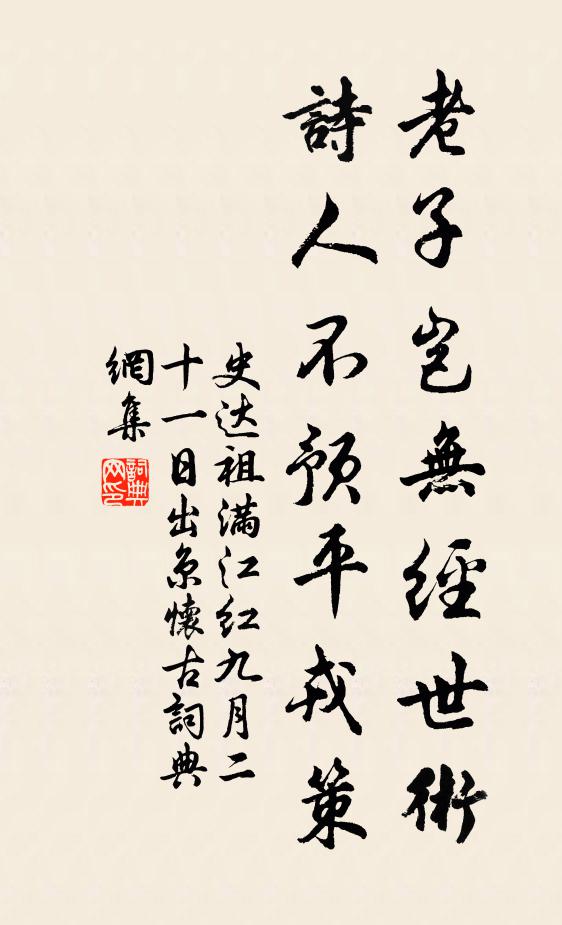 老子岂無經世術
詩人不預平戎策
史达祖满江红九月二
十一日出京懷古詞典
網集
詞典
网印